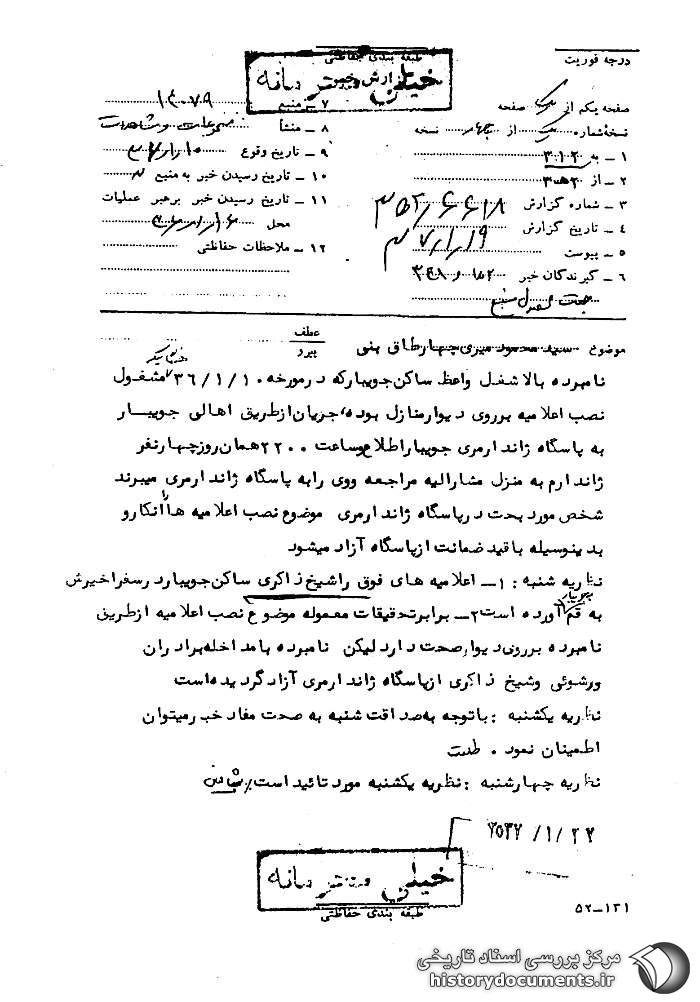 درجه فوریت
طبقه بندی حفاظتی
گزارش خبر
خیلی محرمانه
صفحه یکم از یک صفحه
نسخه شماره یک از چهار نسخه
۱ – به ۳۱۲
۲ – از
۳ – شماره گزارش
۴ – تاریخ گزارش ۳۷/۱/۱۹
۵ – پیوست
۶ – گیرندگان خبر
۷ – منبع ۱۴۰۷۹
۸ – منشأ
۹ – تاریخ وقوع
۱۰ – تاریخ رسیدن خبر به منبع
۱۱ – تاریخ رسیدن خبر برهبر عملیات
محل
۱۲ – ملاحظات حفاظتی
موضوع سید محمود میری چهارطاق بنی
عطف
پیرو
نامبرده بالا شغل واعظ ساکن جویبار که در مورخه ۳۶/۱/۱۰ مشغول
نصب اعلامیه بر روی دیوار منازل بوده، جریان از طریق اهالی جویبار
به پاسگاه ژاندارمری جویبار اطلاع و ساعت ۲۲۰۰ همان روز چهار نفر
ژاندارم به منزل مشارالیه مراجعه و وی را به پاسگاه ژاندارمری میبرند
شخص مورد بحث در پاسگاه ژاندارمری موضوع نصب اعلامیه ها را انکار و
بدینوسیله با قید ضمانت از پاسگاه آزاد میشود
نظریه شنبه : ۱ــ اعلامیه های فوق را شیخ ذاکری ساکن جویبار در سفر اخیرش
به قم بجویبار آورده است ۲ــ برابر تحقیقات معموله موضوع نصب اعلامیه از طریق
نامبرده بر روی دیوار صحت دارد لیکن نامبرده با مداخله برادران
ورشوئی و شیخ ذاکری از پاسگاه ژاندارمری آزاد گردیده است
نظریه یکشنبه : با توجه به صداقت شنبه به صحت مفاد خبر میتوان
اطمینان نمود .
نظریه چهارشنبه : نظریه یکشنبه مورد تائید است٪
۲۵۳۷/۱/۲۲
خیلی محرمانه
طبقه بندی حفاظتی
۵۲–۱۳۱
مرکز بررسی اسناد تاریخی
historydocuments.ir